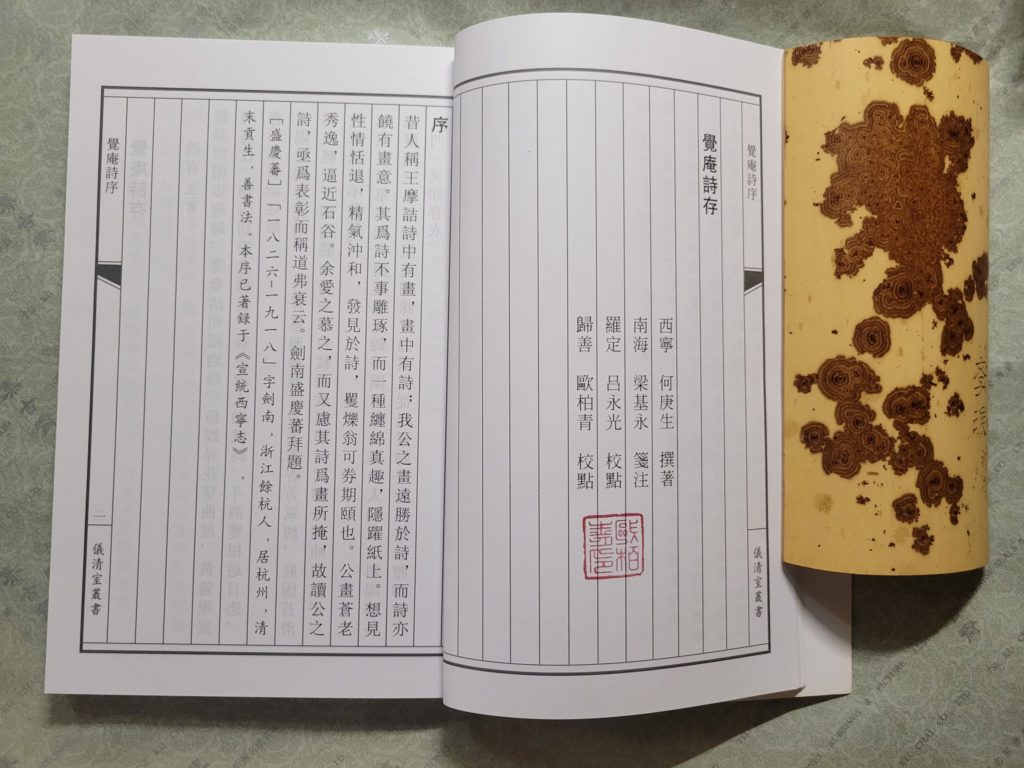 覺庵詩序
覺庵詩存
西寧 何庚生 撰著
南海 梁基永 箋注
羅定 吕永光 校點
歸善 歐柏青 校點
歐柏青印
儀清室叢書
序
昔人稱王摩詰詩中有畫，畫中有詩；我公之畫遠勝於詩，而詩亦
饒有畫意。其爲詩不事雕琢，而一種纏綿真趣，隱躍紙上。想見
性情恬退，精氣沖和，發見於詩，矍爍翁可券期頤也。公畫蒼老
秀逸，逼近石谷。余愛之慕之，而又慮其詩爲畫所掩，故讀公之
詩，亟爲表彰而稱道弗衰云。劍南盛慶蕃拜題。
［盛慶蕃］「一八二六－一九一八」字劍南，浙江餘杭人，居杭州，清
末貢生，善書法。本序已著録于《宣統西寧志》
覺庵詩序
一
儀清室叢書